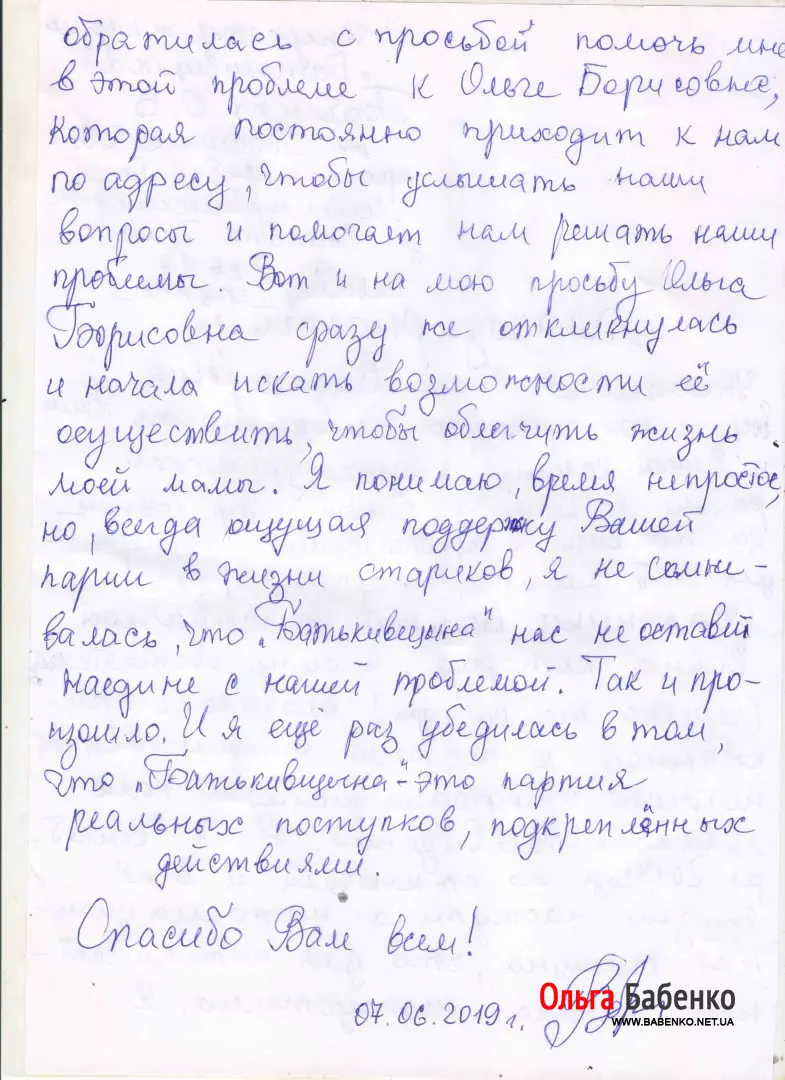 обратилась с просьбой помочь мне
в этой проблеме к Ольге Борисовне,
которая постоянно приходит к нам
по адресу, чтобы услышать наши
вопросы и помогает нам решать наши
проблемы. Вот и на мою просьбу Ольга
Борисовна сразу же откликнулась
и начала искать возможности её
осуществить, чтобы облегчить жизнь
моей мамы. Я понимаю, время непростое,
но, всегда ощущая поддержку Вашей
парии в жизни стариков, я не сомни-
валась, что „Батькивщина" нас не оставит
наедине с нашей проблемой. Так и про-
изошло. И я еще раз убедилась в том,
что „Батькивщина"- это партия
реальных поступков, подкреплённых
действиями.
Спасибо Вам всем!
07.06.2019 г.
Ольга Бабенко
WWW.BABENKO.NET.UA